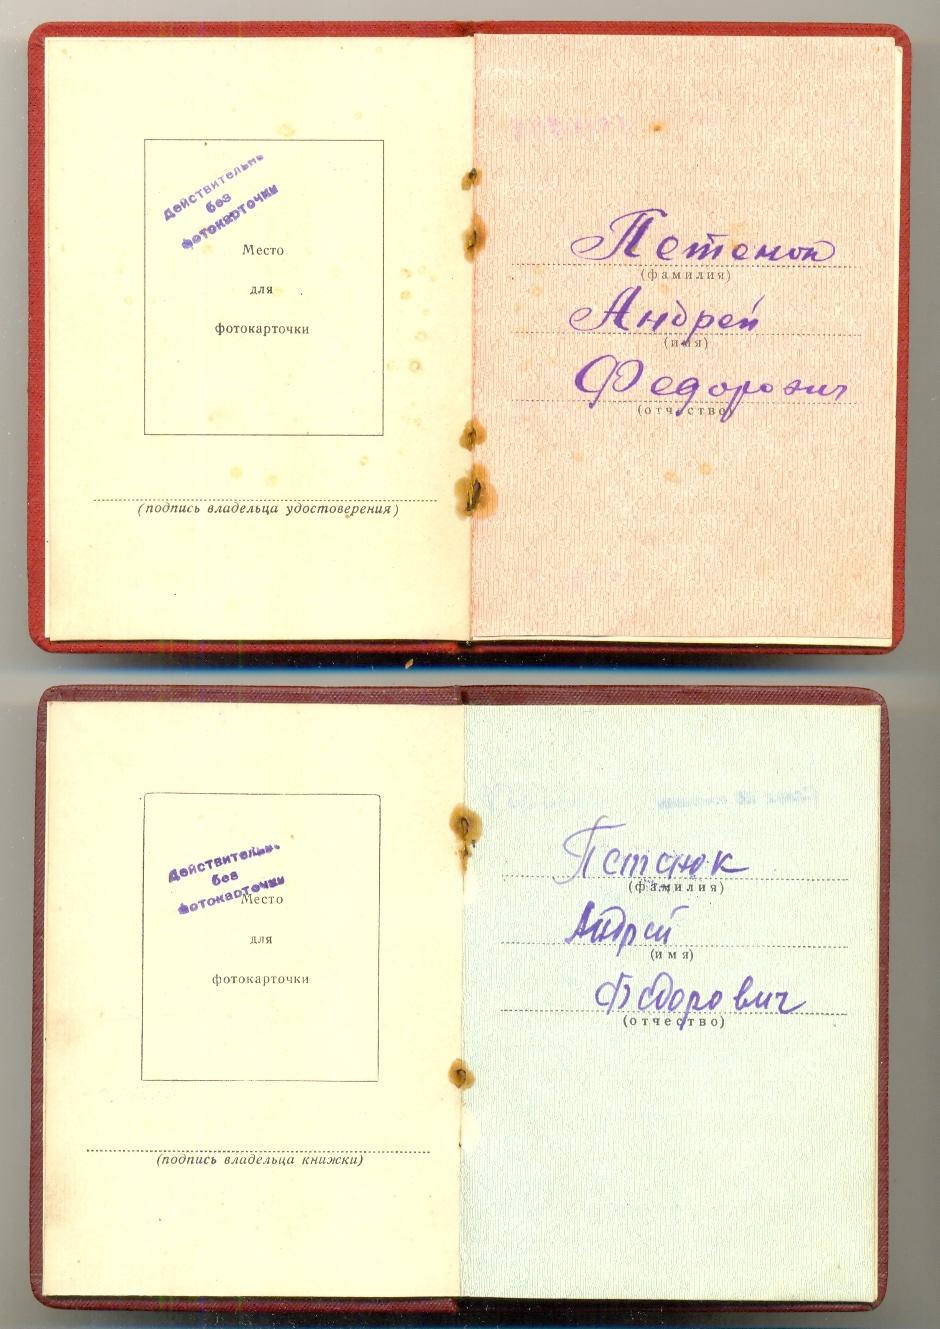 Действительно
без
фотокарточки
Место
для
фотокарточки
(подпись владельца удостоверения)
Петенок
(фамилия)
Андрей
(имя)
Федорович
(отчество)
Действительно
без
фотокарточки
Место
для
фотокарточки
(подпись владельца книжки)
Петенок
(фамилия)
Андрей
(имя)
Федорович
(отчество)